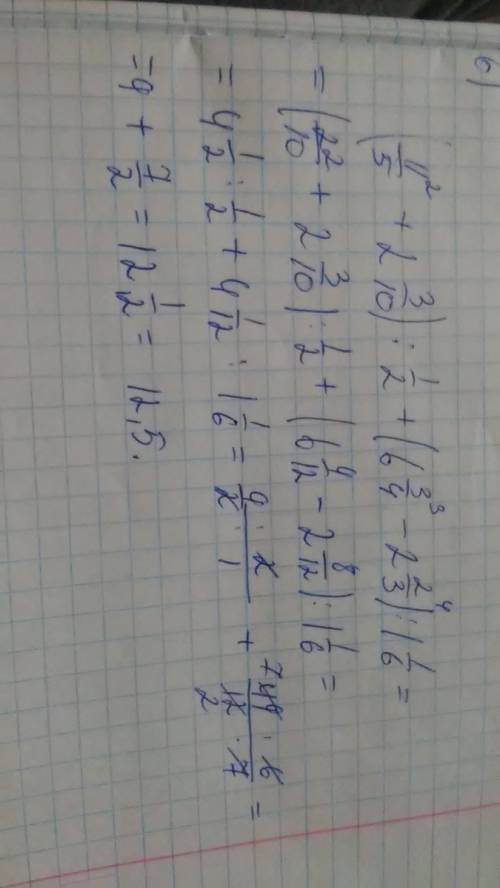 б)
(11/5² + 2 3/10) : 1/2 + (6 3/4³ - 2 2/3⁴) : 1 1/6 =
= (22/10 + 2 3/10) : 1/2 + (6 9/12 - 2 8/12) : 1 1/6 =
= 4 1/2 : 1/2 + 4 1/12 : 1 1/6 = 9/2 · 2/1 + 7 49 · 6/12 · 7 2 =
= 9 + 7/2 = 12 1/2 = 12,5.